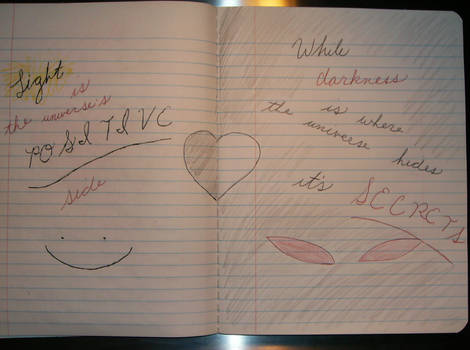 Light
is
the universe's
POSITIVE
side
While
darkness
is where
the universe hides
it's
SECRETS